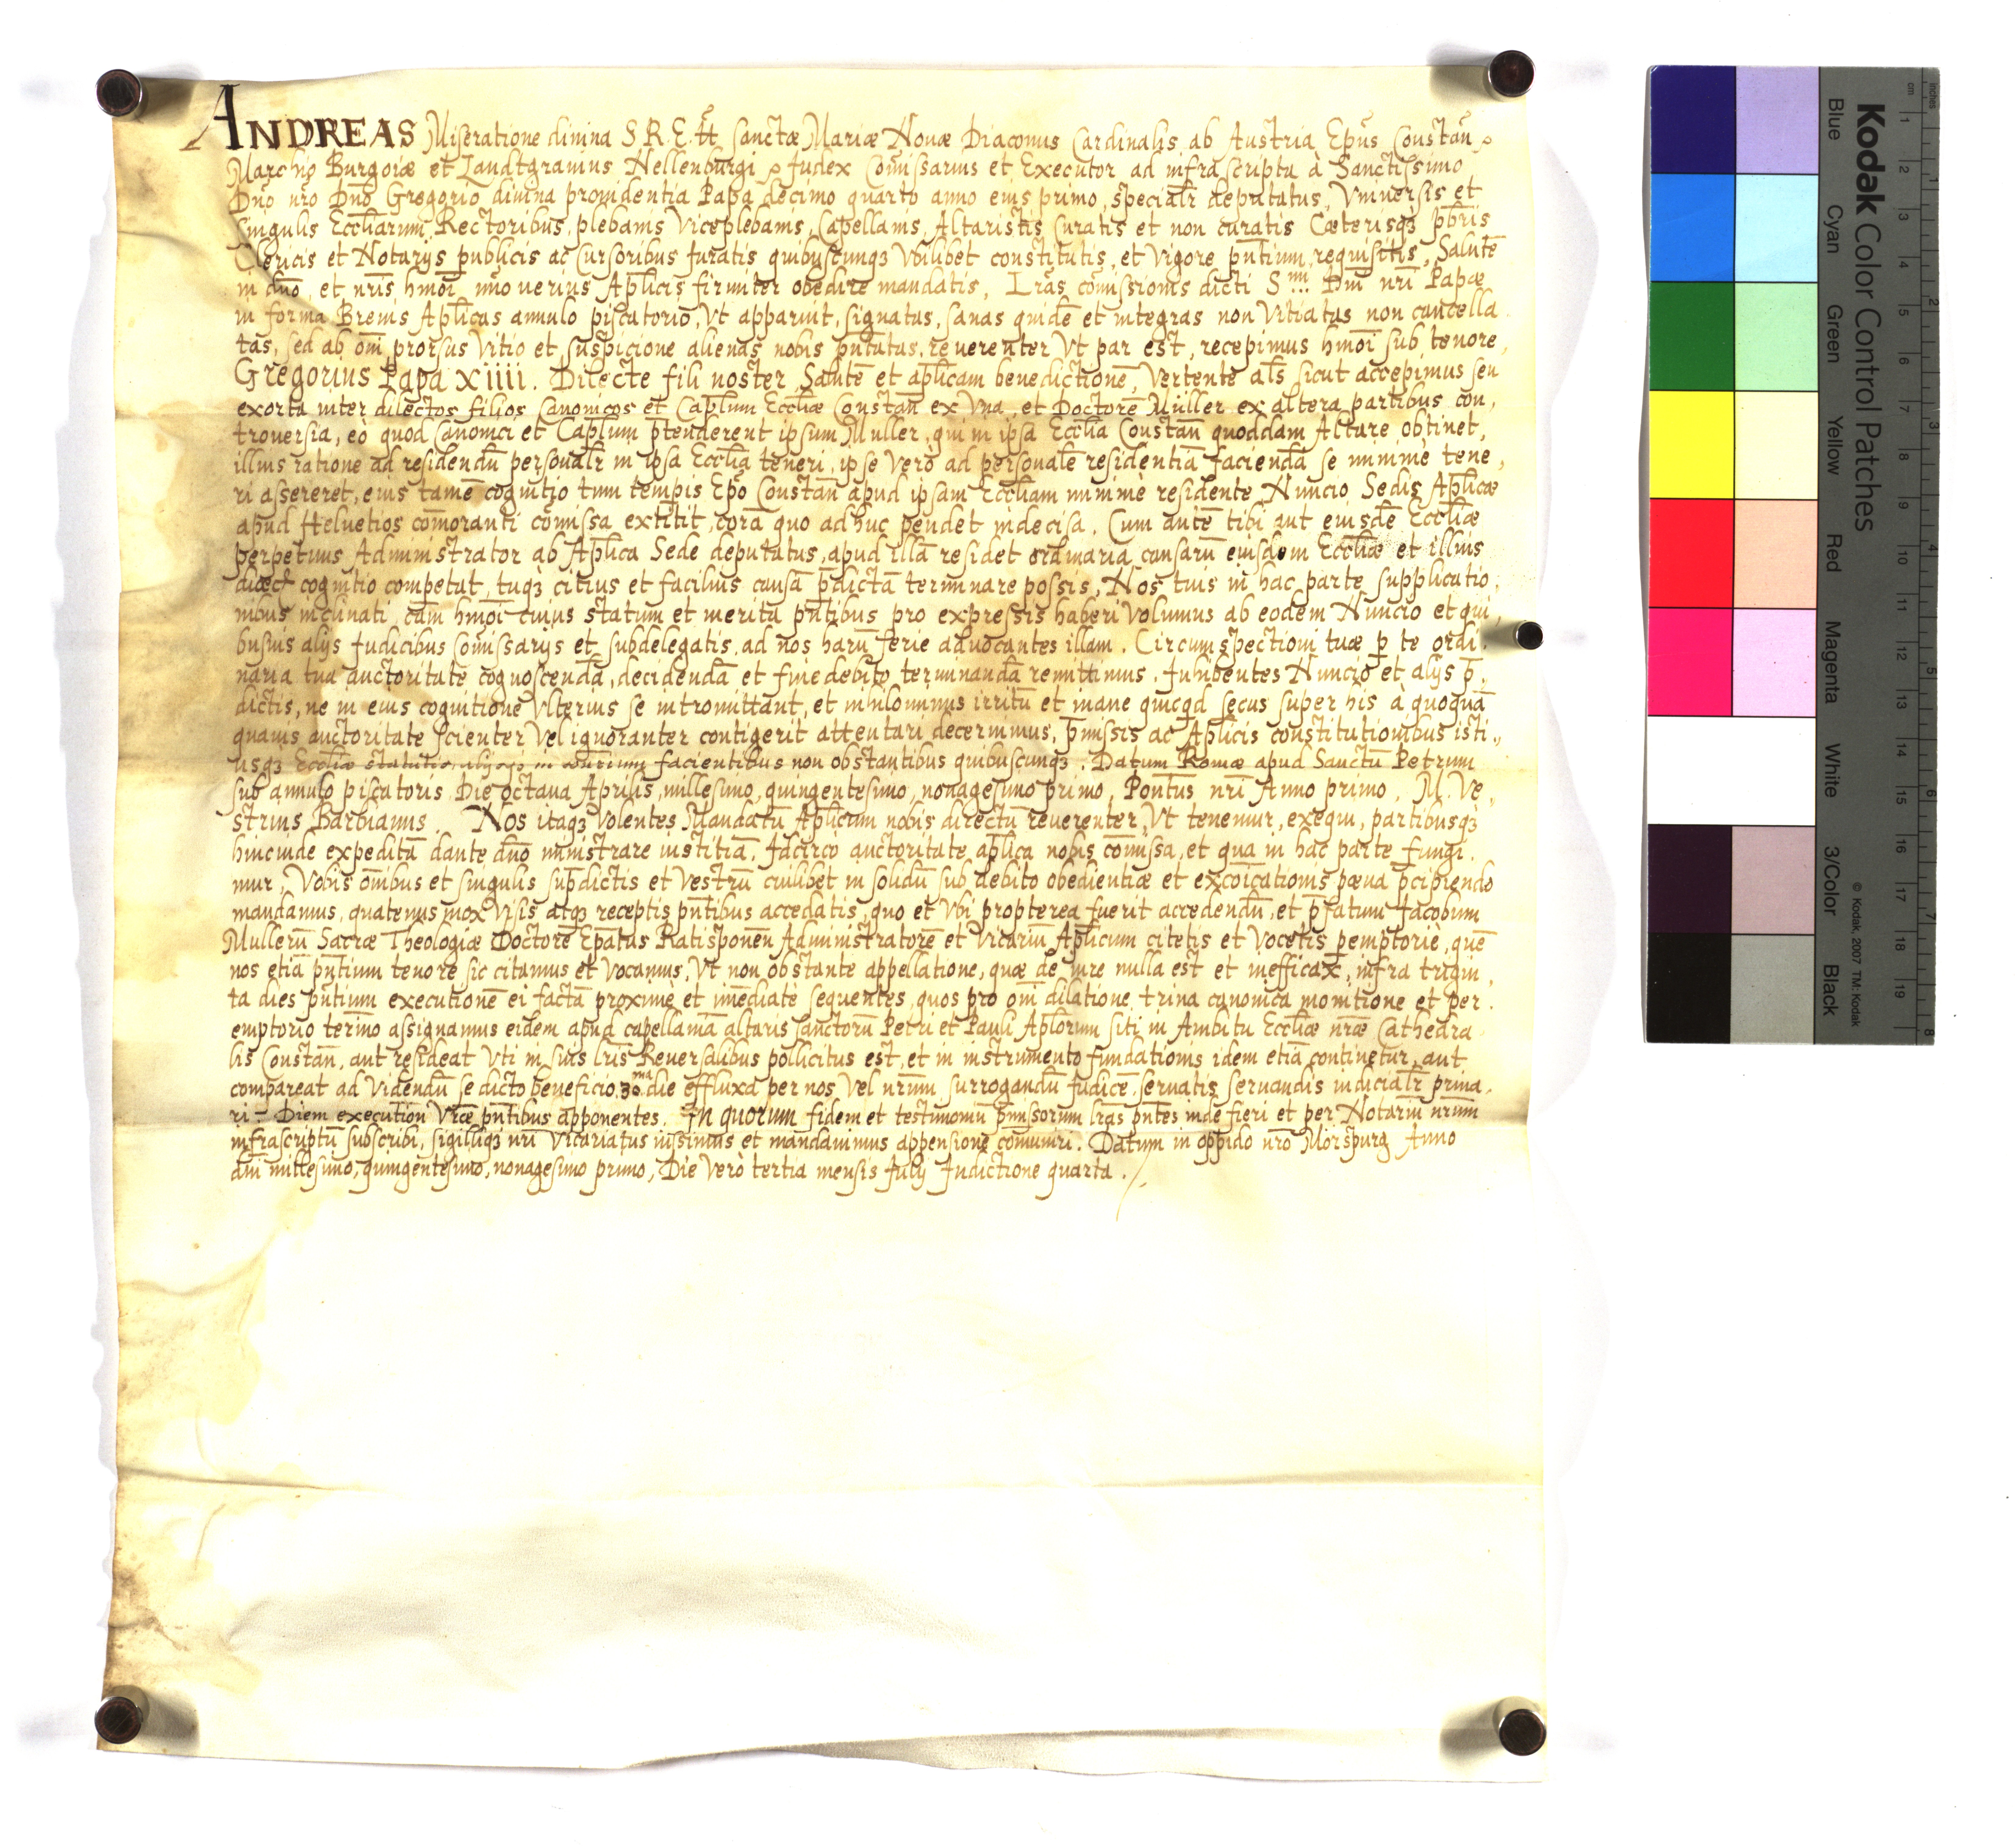 ANDREAS Miseratione diuina S. R. E. tt. Sanctæ Mariæ Nouæ Diaconus Cardinalis ab Austria Ep̄us Constañ
Marchio Burgoiæ et Landtgrauius Nellenburgi Judex Com̄issarius et Executor ad infrascripta à Sanctissimo
Dn̄o nr̄o Dn̄o Gregorio diuina prouidentia Papa decimo quarto anno eius primo, specialr̄ deputatus, Vniuersis et
Singulis Eccl̄iarum Rectoribus, plebanis Viceplebanis, Capellanis, Altaristis Curatis et non curatis Cæterisqꝫ pb̄ris
Clericis et Notarijs publicis ac Cursoribus Iuratis quibuscunqꝫ Vbilibet constitutis, et Vigore pn̄tium requisitis, Salutē
in dn̄o, et nr̄is hmōi, imo uerius Ap̄licis firmiter obedire mandatis, Lr̄as com̄issionis dicti S.mi Dn̄i nr̄i Papæ
in forma Breuis Ap̄licas annulo piscatorio, Vt apparuit, signatas, sanas quidē et integras non Vitiatas non cancella
tas, sed ab om̄i prorsus Vitio et suspicione alienas nobis pn̄tatas, reuerenter Vt par est, recepimus hmōi sub tenore,
Gregorius Papa XIIII. Dilecte fili noster, Salutē et ap̄licam benedictionē, Vertente al̄s sicut accepimus seu
exorta inter dilectos filios Canonicos et Cap̄lum Eccl̄iæ Constañ ex Vna, et Doctorē Müller ex altera partibus con,
trouersia, eò quod Canonici et Cap̄lum p̄tenderent ipsum Muller, qui in ipsa Eccl̄ia Constañ quoddam Altare obtinet,
illius ratione ad residendū personalr̄ in ipsa Eccl̄ia teneri, ipse verò ad personalē residentiā faciendā se minimè tene,
ri assereret, eius tamē cognitio tum temp̄is Ep̄o Constañ apud ipsam Eccl̄iam minimè residente, Nuncio Sedis Ap̄licæ
apud Heluetios com̄oranti com̄issa extitit, corā quo ad huc pendet indecisa. Cum autē tibi aut eiusdē Eccl̄iæ
perpetuus Administrator ab Ap̄lica Sede deputatus, apud illā residet ordinaria causarū eiusdem Eccl̄iæ et illius
cognitio competat, tuqꝫ citius et facilius causā p̄dictā terminare possis, Nos tuis in hac parte supplicatio,
nibus inclinati, cām hmōi cuius statum et merita pn̄tibus pro expressis haberi Volumus ab eodem Nuncio et qui,
busuis alijs Judicibus Com̄issarijs et subdelegatis, ad nos harū serie aduocantes illam. Circumspectioni tuæ p̱ te ordi.
naria tua auctoritate cognoscendā, decidendā et fine debito terminandā remittimus. Inhibentes Nuncio et alijs p̄.
dictis, ne in eius cognitione Vlterius se intromittant, et nihilominus irritū et inane quicqd secus super his à quoquā
quauis auctoritate Scienter Vel ignoranter contigerit attentari decernimus, p̄missis ac Ap̄licis constitutionibus isti,
usqꝫ Eccl̄iæ statutis, alijsqꝫ in contrium facientibus non obstantibus quibuscunqꝫ. Datum Romæ apud Sanctū Petrum
sub annulo piscatoris Die Octaua Aprilis, millesimo, quingentesimo, nonagesimo primo, Pontus nr̄i Anno primo. M. Ve,
strius Barbianus. Nos itaqꝫ Volentes Mandatū Ap̄licum nobis directū reuerenter, Vt tenemur, exequi, partibusqꝫ
hincinde expeditā dante dn̄o ministrare iustitiā. Idcirco auctoritate ap̄lica nobis com̄issa, et qua in hac parte fungi.
mur, Vobis om̄ibus et singulis sup̄dictis et Vestrū cuilibet in solidū sub debito obedientiæ et excōicationis pæna p̄cipiendo
mandamus, quatenus mox Visis atqꝫ receptis pn̄tibus accedatis, quo et Vbi propterea fuerit accedendū, et p̄fatum Jacobum
Mullerū Sacræ Theologiæ Doctorē Ep̄atus Ratisponeñ Administratorē et Vicariū Ap̄licum citetis et Vocetis p̱emptoriè, quē
nos etiā pn̄tium tenore sic citamus et Vocamus, Vt non obstante appellatione, quæ de iure nulla est et inefficax, infra trigin,
ta dies pn̄tium executionē ei factā proximè et im̄ediatè sequentes, quos pro om̄i dilatione, trina canonica monitione et per.
emptorio termīo assignamus eidem apud capellaniā altaris Sanctorū Petri et Pauli Ap̄lorum siti in Ambitu Eccl̄iæ nr̄æ Cathedra
lis Constañ, aut resideat Vti in suis lr̄is Reuersalibus pollicitus est, et in instrumento fundationis idem etiā continetur, aut
compareat ad Videndū se dicto beneficio 30ma die effluxa per nos Vel nr̄um surrogandū Judicē, seruatis seruandis iudicialr̄ priua.
ri - Diem execution Vræ pn̄tibus apponentes. In quorum fidem et testimoniū p̄missorum lr̄as pn̄tes inde fieri et per Notariū nr̄um
infrascriptū subscribi, sigilliqꝫ nr̄i Vicariatus iussimus et mandauimus appensione com̄uniri. Datum in oppido nr̄o Mörspurg Anno
dn̄i millesimo, quingentesimo, nonagesimo primo, Die Verò tertia mensis Julij Indictione quarta.
Kodak Color Control Patches
Blue Cyan Green Yellow Red Magenta White 3/Color Black
© Kodak, 2007 TM: Kodak
cm 1 2 3 4 5 6 7 8 9 10 11 12 13 14 15 16 17 18 19
inches 1 2 3 4 5 6 7 8